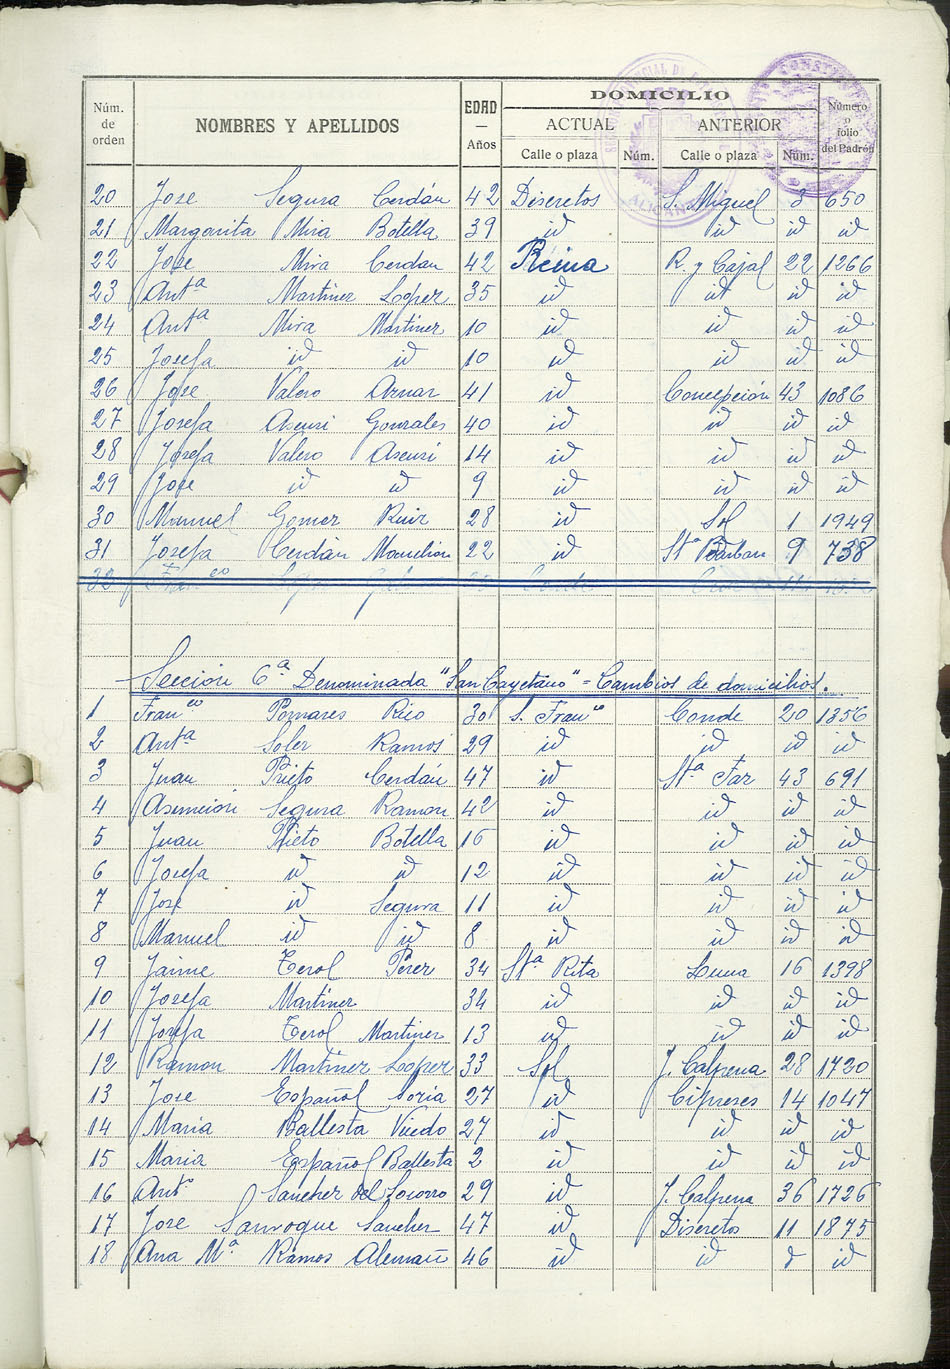 DOMICILIO
Núm. de orden NOMBRES Y APELLIDOS EDAD — Años ACTUAL ANTERIOR Número o folio del Padrón
Calle o plaza Núm. Calle o plaza Núm.
20 Jose Segura Cerdán 42 Discretos S. Miguel 3 650
21 Margarita Mira Botella 39 id id id id
22 Jose Mira Cerdan 42 Reina R. y Cajal 22 1266
23 Antª Martinez Lopez 35 id id id id
24 Antª Mira Martinez 10 id id id id
25 Josefa id id 10 id id id id
26 Jose Valero Aznar 41 id Concepción 43 1086
27 Josefa Asensi Gonzales 40 id id id id
28 Josefa Valero Asensi 14 id id id id
29 Jose id id 9 id id id id
30 Manuel Gomez Ruiz 28 id Sol 1 1949
31 Josefa Cerdán 22 id Stª Barbara 9 738
32 Franco
Sección 6ª Denominada "San Cayetano" - Cambios de domicilios.
1 Franco Pomares Rico 30 S. Franco Conde 20 1356
2 Antª Soler Ramos 29 id id id id
3 Juan Prieto Cerdán 47 id Stª Faz 43 691
4 Asunción Segura Ramon 42 id id id id
5 Juan Prieto Botella 16 id id id id
6 Josefa id id 12 id id id id
7 Jose id Segura 11 id id id id
8 Manuel id id 8 id id id id
9 Jaime Terol Perez 34 Stª Rita Luna 16 1398
10 Josefa Martinez 34 id id id id
11 Josefa Terol Martinez 13 id id id id
12 Ramon Martinez Lopez 33 Sol J. Calpena 28 1720
13 Jose Español Soria 27 id Cipreses 14 1047
14 Maria Ballesta Viudo 27 id id id id
15 Maria Español Ballesta 2 id id id id
16 Antº Sanchez del Socorro 29 id J. Calpena 36 1726
17 Jose Sanroque Sanchez 47 id Discretos 11 1875
18 Ana Mª Ramos Alemañ 46 id id id id